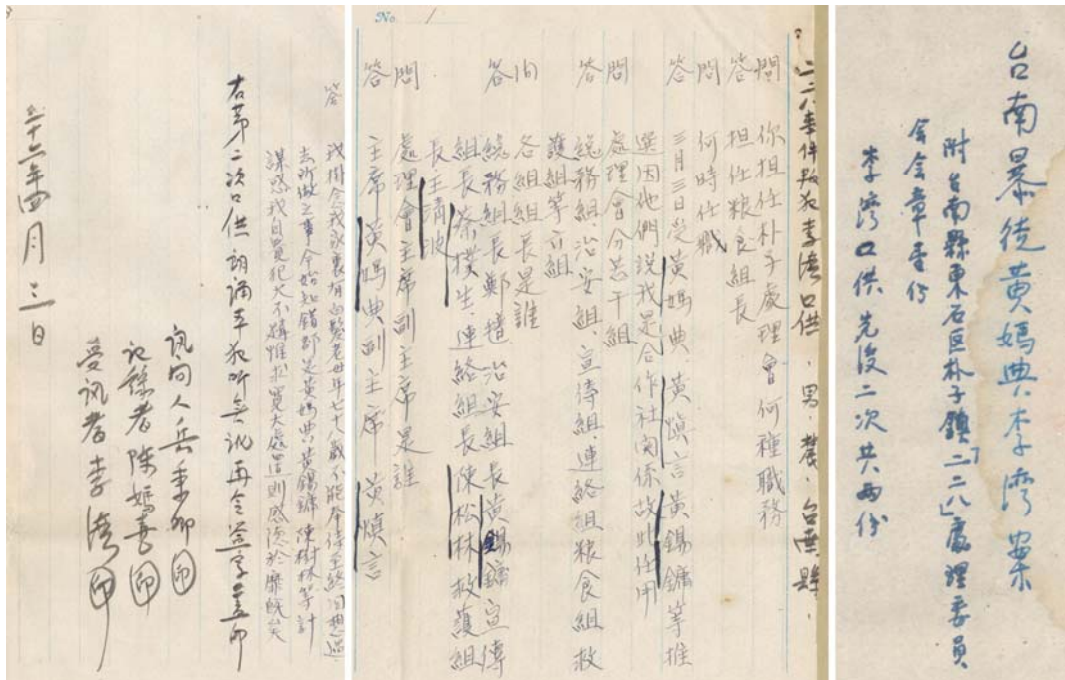 台南暴徒黃媽典李灣案
附台南縣東石区朴子鎮「二二八」處理委員
會會章壹份
李灣口供先後二次共兩份
No. 1
二二八事件叛犯李灣口供,男,農,台南縣,
問 你担任朴子處理會何種職務
答 担任粮食組長
問 何時任職
答 三月三日受黃媽典、黃慎言黃錫鏞等推
選因他們說我是合作社関係故此任用
問 處理會分若干組
答 總務組、治安組、宣傳組、連絡組粮食組救
護組等六組
問 各組組長是誰
答 總務組長鄭 治安組長黃錫鏞宣傳
組長蔡樸生、連絡組長陳松林救護組
長王清波
問 處理會主席副主席是誰
答 主席黃媽典副主席黃慎言
答 我掛念我家裏有白髮老母年七七歲不能奉侍至終回想過
去所做之事今始知錯都是黃媽典黃錫鏞陳樹林等計
謀惑我自覺犯大不韙惟求寬大處置則感德於靡既矣
右第二次口供朗誦本犯听無訛再令簽字立印
訊問人岳秉卿印
記錄者陳媽喜印
受訊者李灣印
三十六年四月三日